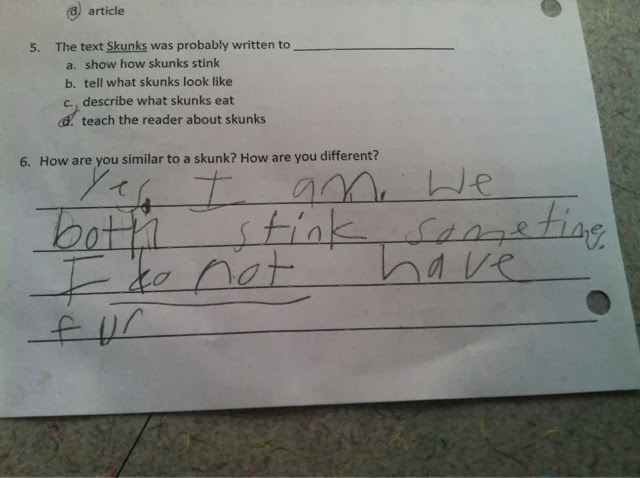 a. article
5. The text Skunks was probably written to ____________
a. show how skunks stink
b. tell what skunks look like
c. describe what skunks eat
d. teach the reader about skunks
6. How are you similar to a skunk? How are you different?
Yes, I am. We
both stink sometime.
I do not have
fur